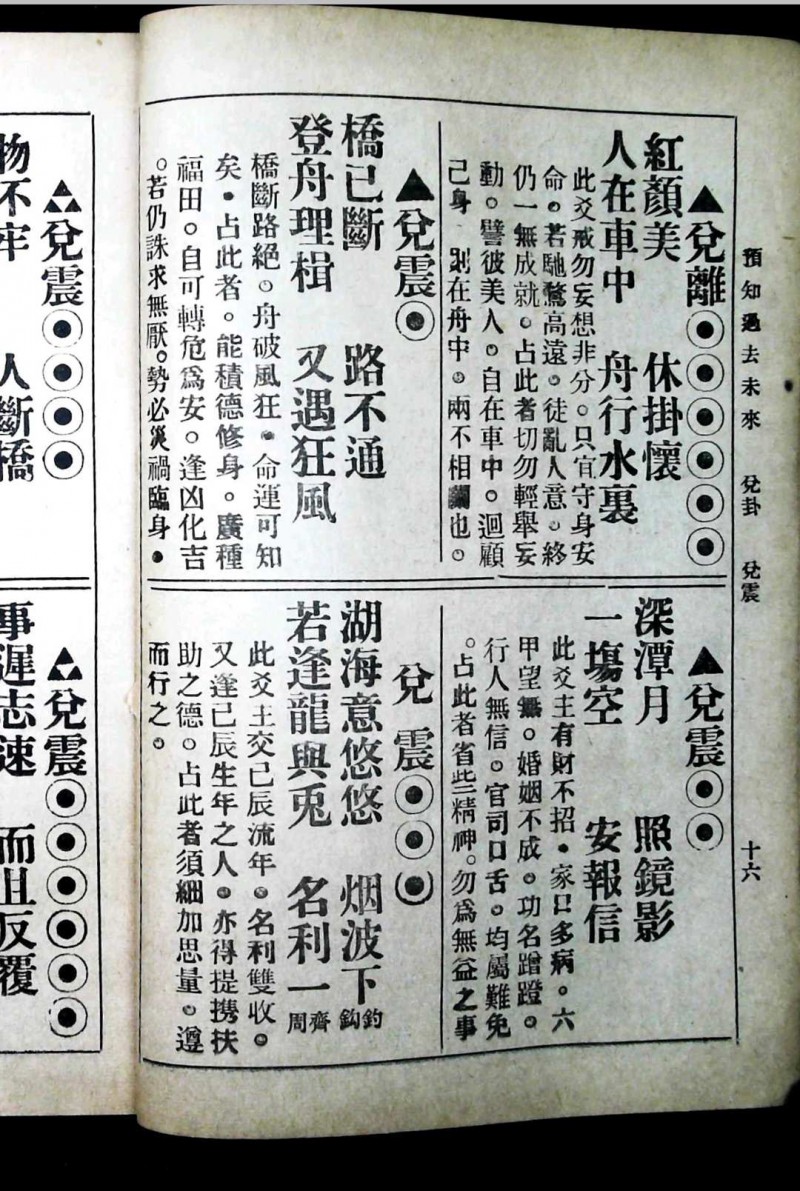 預知過去未來 兌卦 兌震 十六
▲兌離◉◉◉◉◉◉
紅顏美 休掛懷
人在車中 舟行水裏
此爻戒勿妄想非分。只宜守身安
命。若馳騖高遠。徒亂人意。終
仍一無成就。占此者切勿輕舉妄
動。譬彼美人。自在車中。迴顧
己身 別在舟中。兩不相 也。
▲兌震◉
橋已斷 路不通
登舟理楫 又遇狂風
橋斷路絕。舟破風狂。命運可知
矣。占此者。能積德修身。廣種
福田。自可轉危爲安。逢凶化吉
。若仍誅求無厭。勢必災禍臨身。
▲兌震◉◉
深潭月 照鏡影
一塲空 安報信
此爻主有財不招。家口多病。六
甲望 。婚姻不成。功名蹭蹬。
行人無信。官司口舌。均屬難免
。占此者省些精神。勿爲無益之事
兌震◉◉◉
湖海意悠悠 烟波下釣鈎
若逢龍與兎 名利一齊周
此爻主交己辰流年。名利雙收。
又逢己辰生年之人。亦得提携扶
助之德。占此者須細加思量。遵
而行之。
▲兌震◉◉◉◉
物不牢 人斷橋
▲兌震◉◉◉◉◉◉
事遲志速 而且反覆